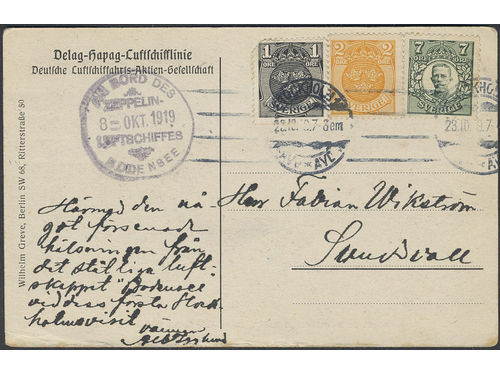 Delag-Hapag-Luftschifflinie
Deutsche Luftschiffahrts-Aktien-Gesellschaft
AN BORD DES
ZEPPELIN-
8 OKT. 1919
LUFTSCHIFFES
BODENSEE
1 1
ÖRE ÖRE
SVERIGE
2 2
ÖRE ÖRE
SVERIGE
7 7
ÖRE ÖRE
SVERIGE
23.10
AVG
Wilhelm Greve, Berlin SW 68, Ritterstraße 50
Härmed den nå-
got försenade
hälsningen från
det ståtliga luft-
skeppet "Bodensee"
vid dess första Stock-
holmsvisit
vännen
Herr Fabian Wikström
Sundsvall